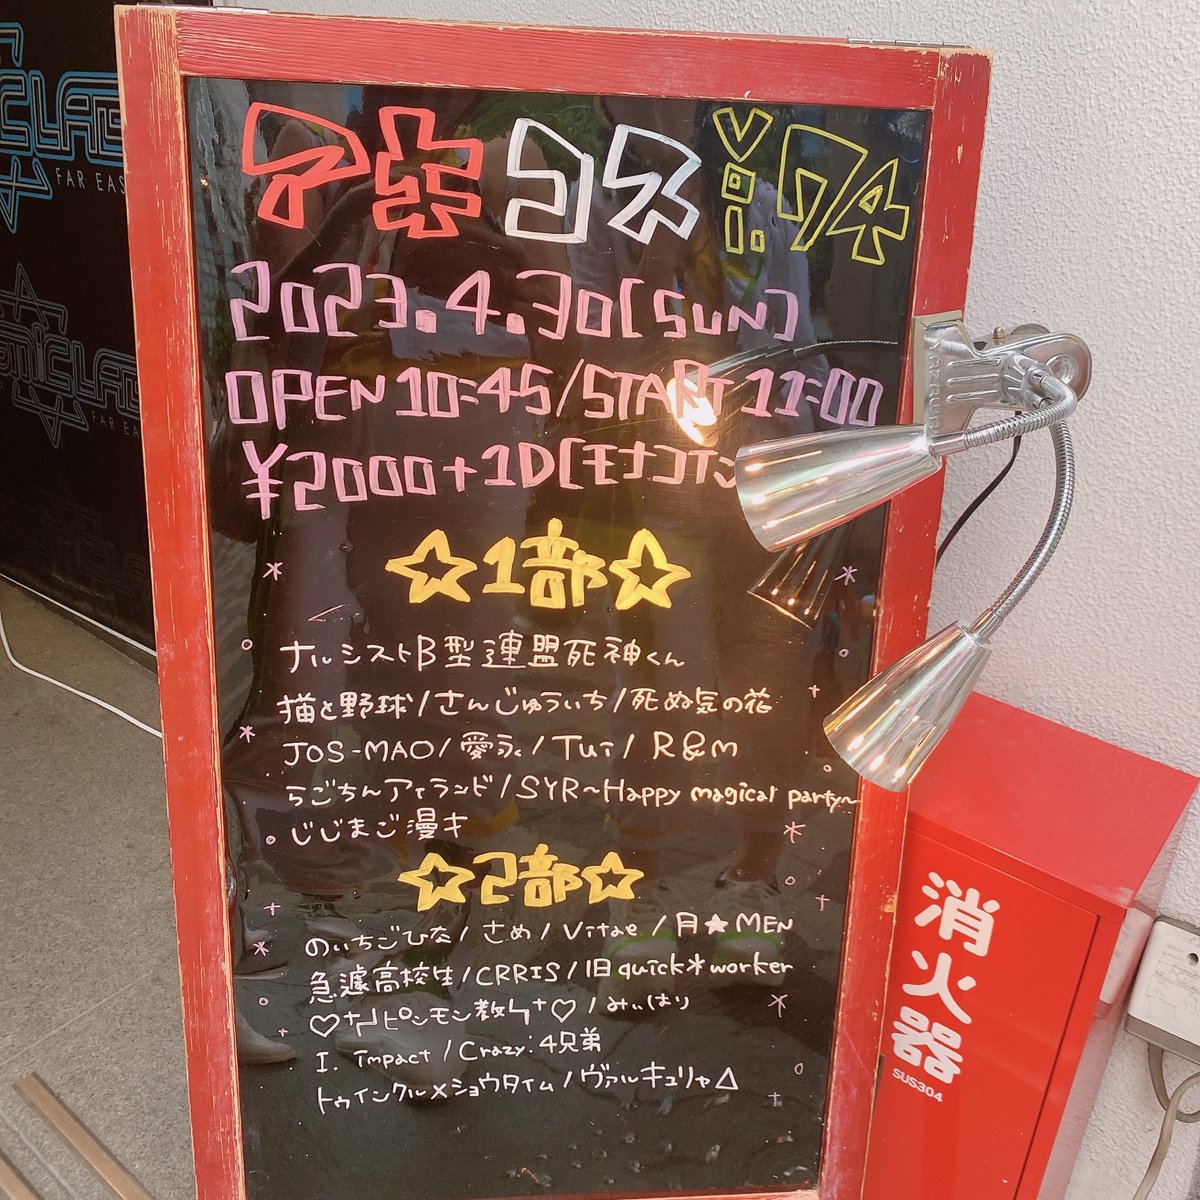 アキコス ゾ:74
2023.4.30[SUN]
OPEN 10:45/START 11:00
¥2000+1D[モナコイン
☆1部☆
ナルシストB型連盟死神くん
猫と野球/さんじゅういち/死ぬ気の花
JOS-MAO/愛永/Tui/R&M
らごちんアイランド/SYR~Happy magical party~
じじまご漫才
☆2部☆
のいちごひな/さめ/Vitae/月★MEN
急遽高校生/CRRIS/旧quick*worker
ピンモン教 ♡/みぃはり
I. impact/Crazy:4兄弟
トゥインクル×ショウタイム/ヴァルキュリャ△
FAR EAS
消火器
SUS304